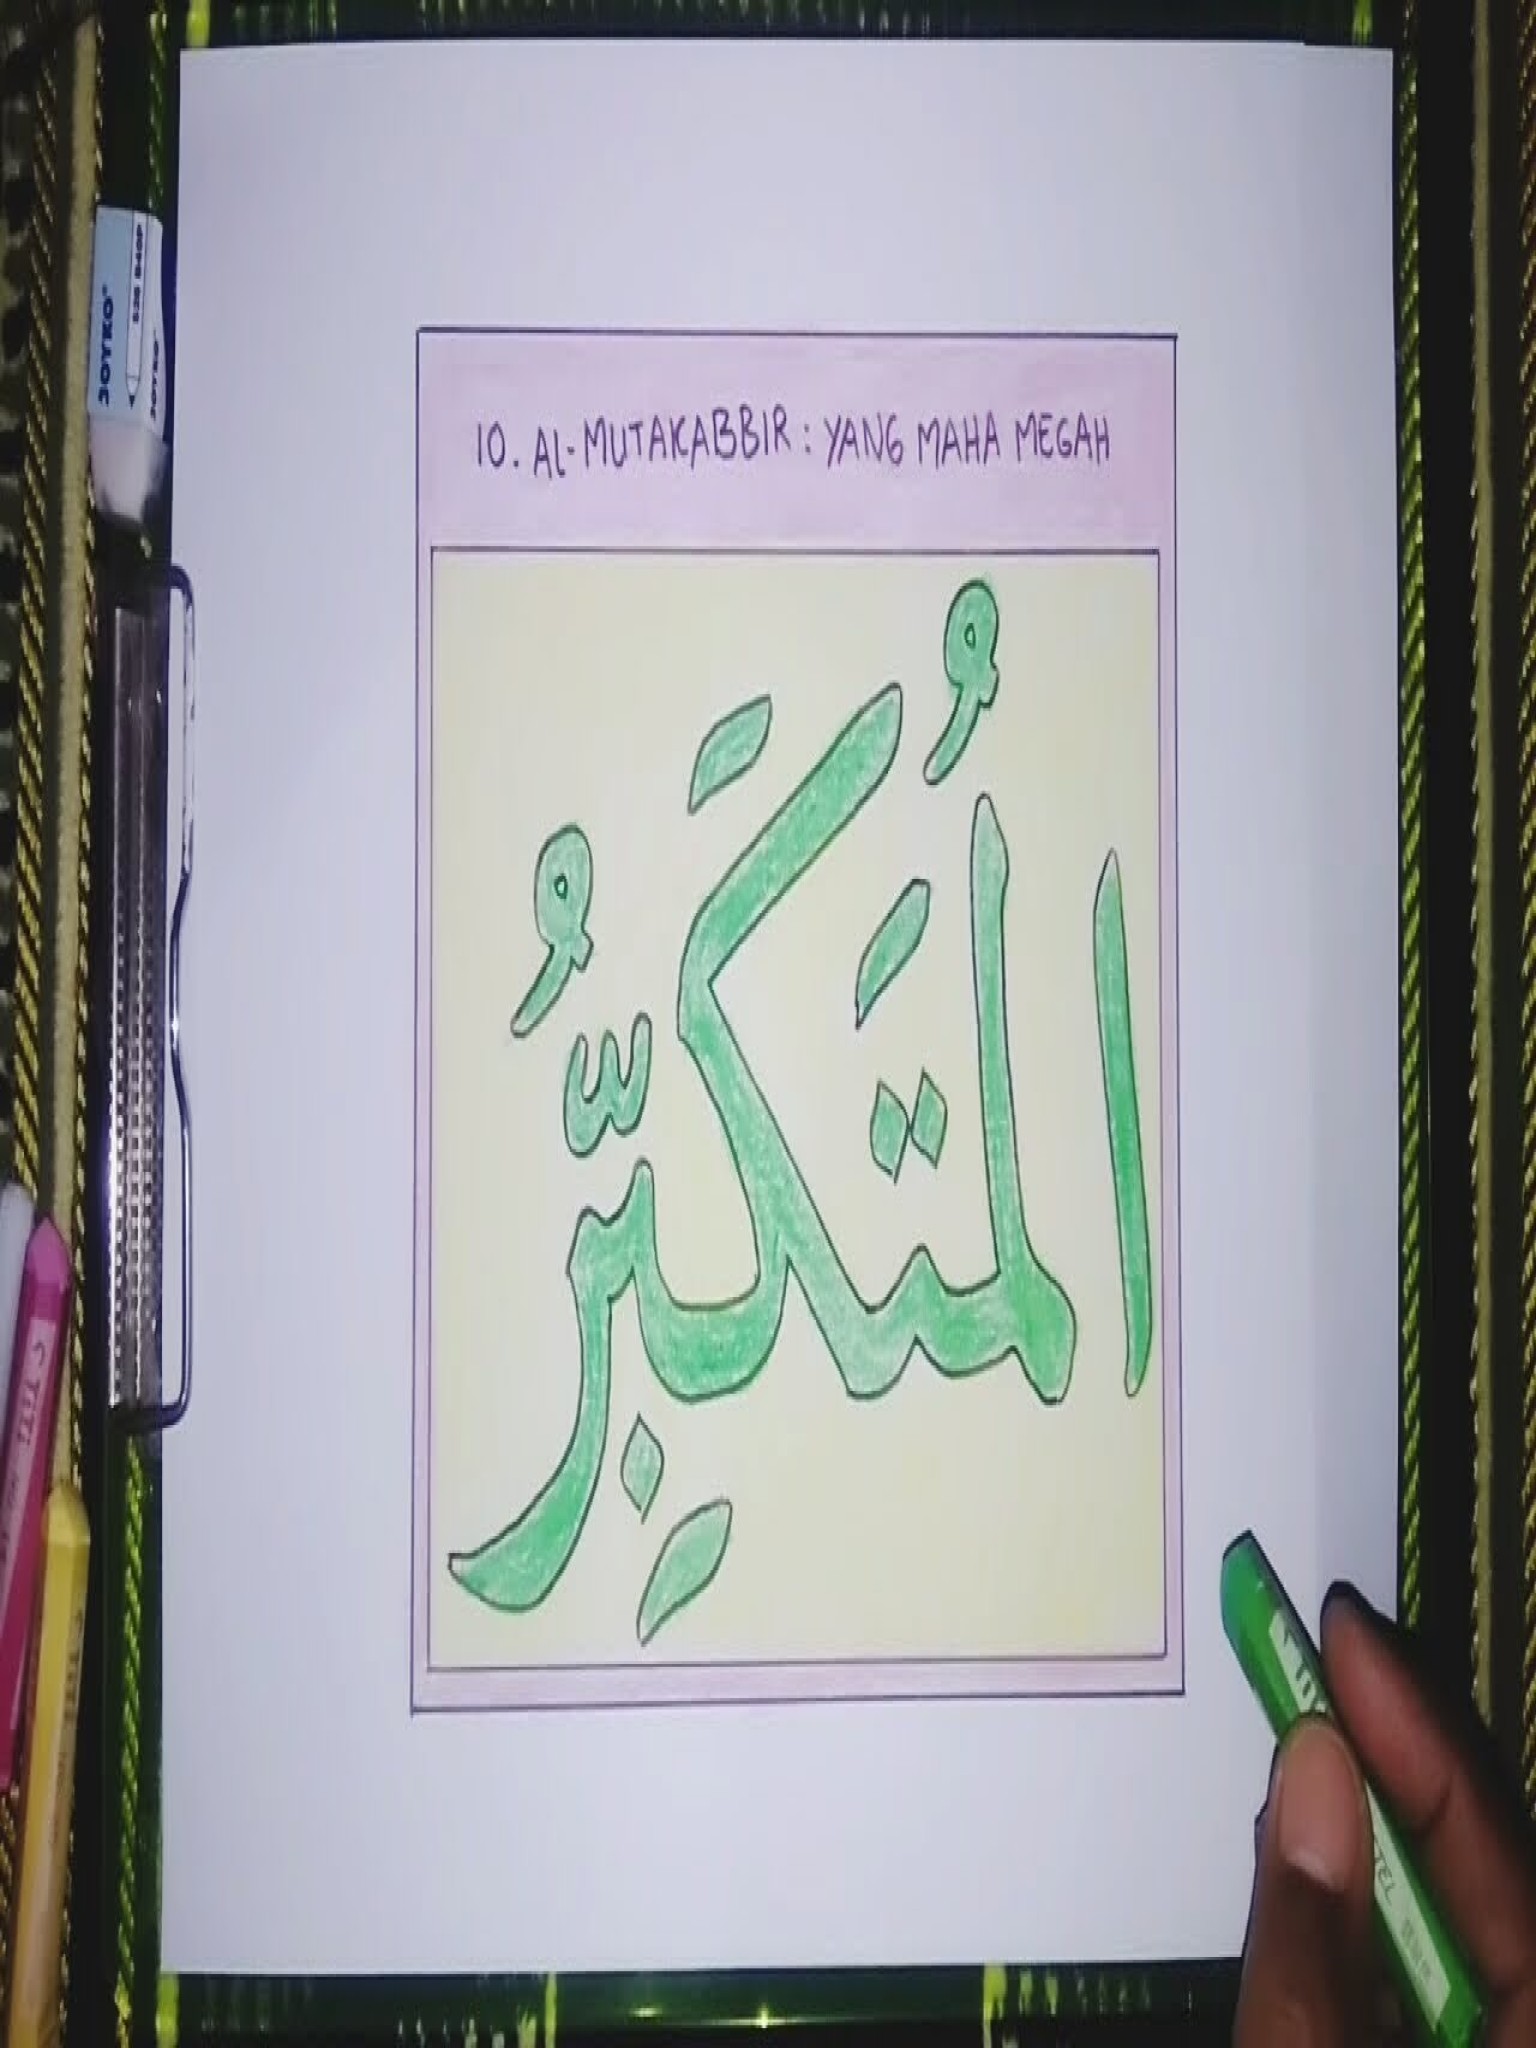 10. AL-MUTAKABBIR : YANG MAHA MEGAH
الْمُتَكَبِّرُ
JOYKO
JOYKO